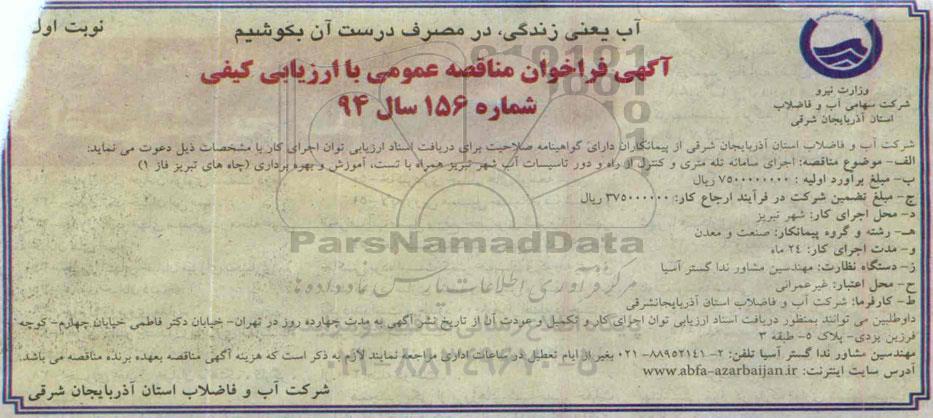 آب یعنی زندگی، در مصرف درست آن بکوشیم
نوبت اول
آگهی فراخوان مناقصه عمومی با ارزیابی کیفی
شماره ۱۵۶ سال ۹۴
وزارت نیرو
شرکت سهامی آب و فاضلاب
استان آذربایجان شرقی
شرکت آب و فاضلاب استان آذربایجان شرقی از پیمانکاران دارای گواهینامه صلاحیت برای دریافت اسناد ارزیابی توان اجرای کار با مشخصات ذیل دعوت می نماید:
الف- موضوع مناقصه: اجرای سامانه تله متری و کنترل از راه و دور تاسیسات آب شهر تبریز همراه با تست، آموزش و بهره برداری (چاه های تبریز فاز ۱)
ب- مبلغ برآورد اولیه : ۷۵۰۰۰۰۰۰۰۰ ریال
ج- مبلغ تضمین شرکت در فرآیند ارجاع کار: ۳۷۵۰۰۰۰۰۰ ریال
د- محل اجرای کار: شهر تبریز
هـ- رشته و گروه پیمانکار: صنعت و معدن
و- مدت اجرای کار: ۲۴ ماه
ز- دستگاه نظارت: مهندسین مشاور ندا گستر آسیا
ح- محل اعتبار: غیرعمرانی
ط- کارفرما: شرکت آب و فاضلاب استان آذربایجانشرقی
داوطلبین می توانند بمنظور دریافت اسناد ارزیابی توان اجرای کار و تکمیل و عودت آن از تاریخ نشر آگهی به مدت چهارده روز در تهران- خیابان دکتر فاطمی خیابان چهارم- کوچه
فرزین یزدی- پلاک ۵- طبقه ۳
مهندسین مشاور ندا گستر آسیا تلفن: ۲- ۸۸۹۵۲۱۴۱-۰۲۱ بغیر از ایام تعطیل در ساعات اداری مراجعه نمایند لازم به ذکر است که هزینه آگهی مناقصه بعهده برنده مناقصه می باشد.
آدرس سایت اینترنت: www.abfa-azarbaijan.ir
شرکت آب و فاضلاب استان آذربایجان شرقی
ParsNamadData
مرکز فرآوری اطلاعات پارس نماد داده ها
۰۲۱-۸۸۳۴۹۶۷۰-۵